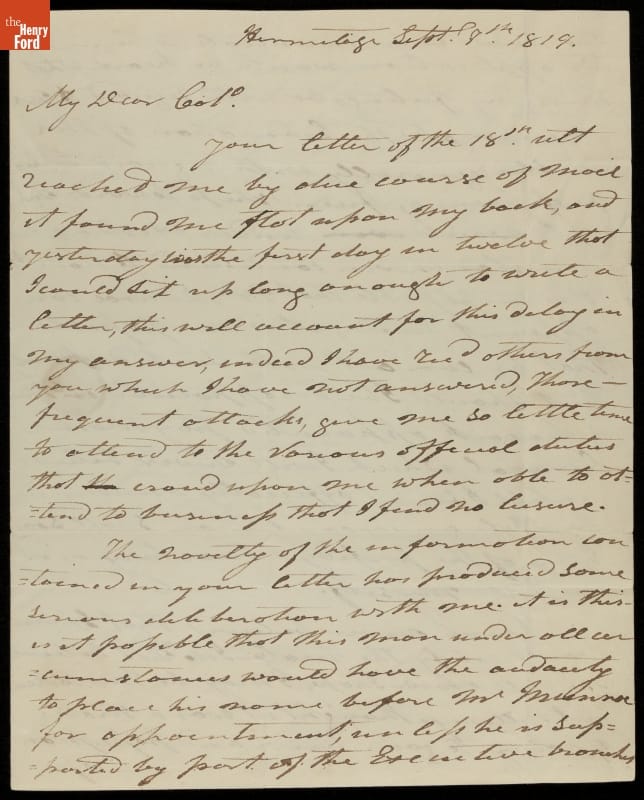 the
Henry
Ford
Hermitage Sept.r 9.th 1819.
My Dear Col.o
your letter of the 18.th ult
reached me by due course of mail
it found me flat upon my back, and
yesterday was the first day in twelve that
I could sit up long enough to write a
letter, this will account for this delay in
my answer, indeed I have recd others from
you which I have not answered, Those—
frequent attacks, give me so little time
to attend to the various official duties
that croud upon me when able to at=
=tend to business that I find no leisure.
The novelty of the information con
=tained in your letter has produced some
serious deliberation with me. it is this—
is it possible that this man under all cir
=cumstances would have the audacity
to place his name before Mr Munroe
for appointment, unless he is sup=
=ported by part of the Executive branches